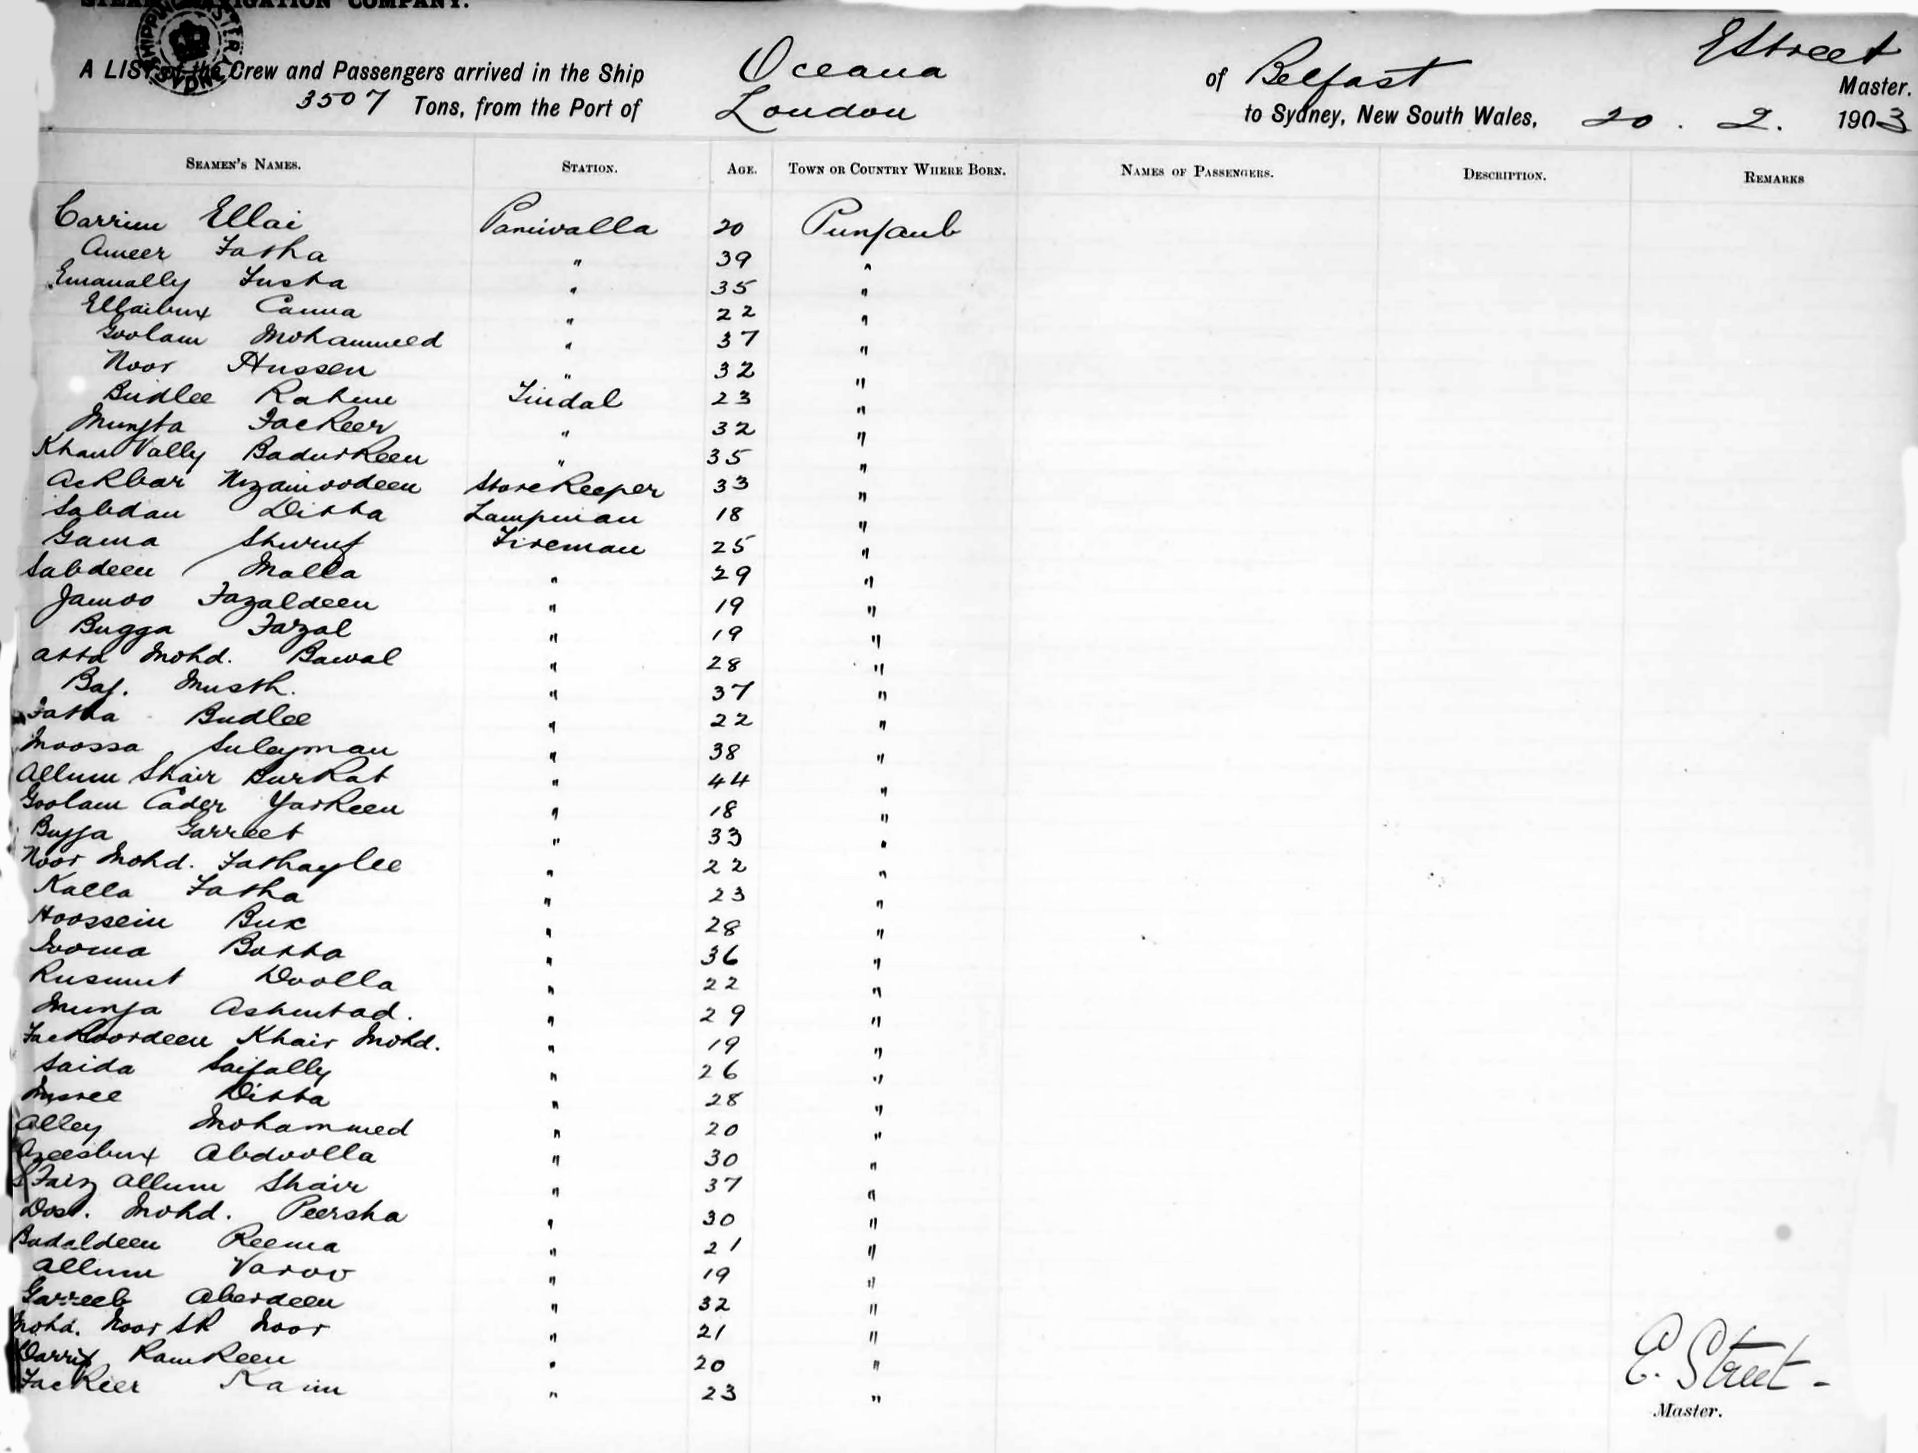 STEAM NAVIGATION COMPANY.
A LIST of the Crew and Passengers arrived in the Ship Oceana of Belfast E Street Master.
3507 Tons, from the Port of London to Sydney, New South Wales, 20 . 2. 1903
SEAMEN'S NAMES. STATION. AGE. TOWN OR COUNTRY WHERE BORN. NAMES OF PASSENGERS. DESCRIPTION. REMARKS
Carrim Ellai Paniwalla 20 Punjaub
Ameer Fatha " 39 "
Emanally " 35 "
Ellaibux Canna " 22 "
Goolam Mohammed " 37 "
Noor Hussen " 32 "
Budlee Rahim Tindal 23 "
Munsta Fackeer " 32 "
Khan Vally Badurkeen " 35 "
Ackbar Nizamoodeen Storekeeper 33 "
Sabdan Ditta Lampman 18 "
Gama Shuruf Fireman 25 "
Sabdeen Malla " 29 "
Jamoo Fazaldeen " 19 "
Bugga Fazal " 19 "
Atta Mohd. Bawal " 28 "
Baj. Musth. " 37 "
Fatha Budlee " 22 "
Moossa Suleyman " 38 "
Allum Shair Burkat " 44 "
Goolam Cader Yarkeen " 18 "
Garreeb " 33 "
Noor Mohd. Fathaylee " 22 "
Kalla Fatha " 23 "
Hoossein Bux " 28 "
Jooma Butta " 36 "
Rusmut Doolla " 22 "
Munja " 29 "
Fackoordeen Khair Mohd. " 19 "
Saida Saifally " 26 "
Ditta " 28 "
Alley Mohammed " 20 "
Azeesbux Abdoolla " 30 "
Faiz Allum Shair " 37 "
Dost. Mohd. Peersha " 30 "
Budaldeen Reema " 21 "
Allum Varoo " 19 "
Garreeb Aberdeen " 32 "
Mohd. Noor SK Noor " 21 "
Ramkeen " 20 "
Fackeer Kaim " 23 "
E. Street -
Master.